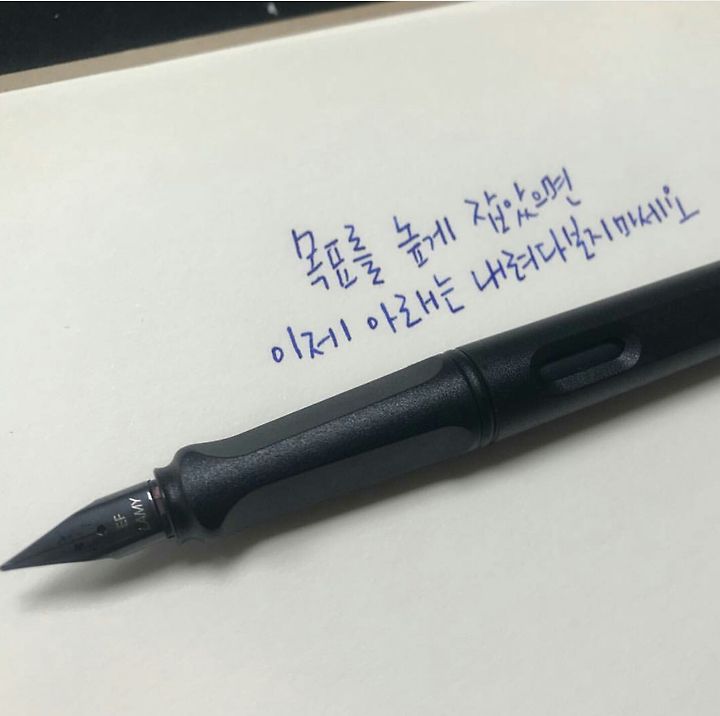 목표를 높게 잡았으면
이제 아래는 내려다보지마세요
EF
LAMY